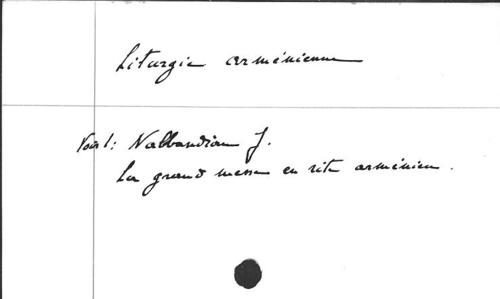 Liturgie arménienne
Voir: Nalbandian J.
La grand messe en rite arménien.